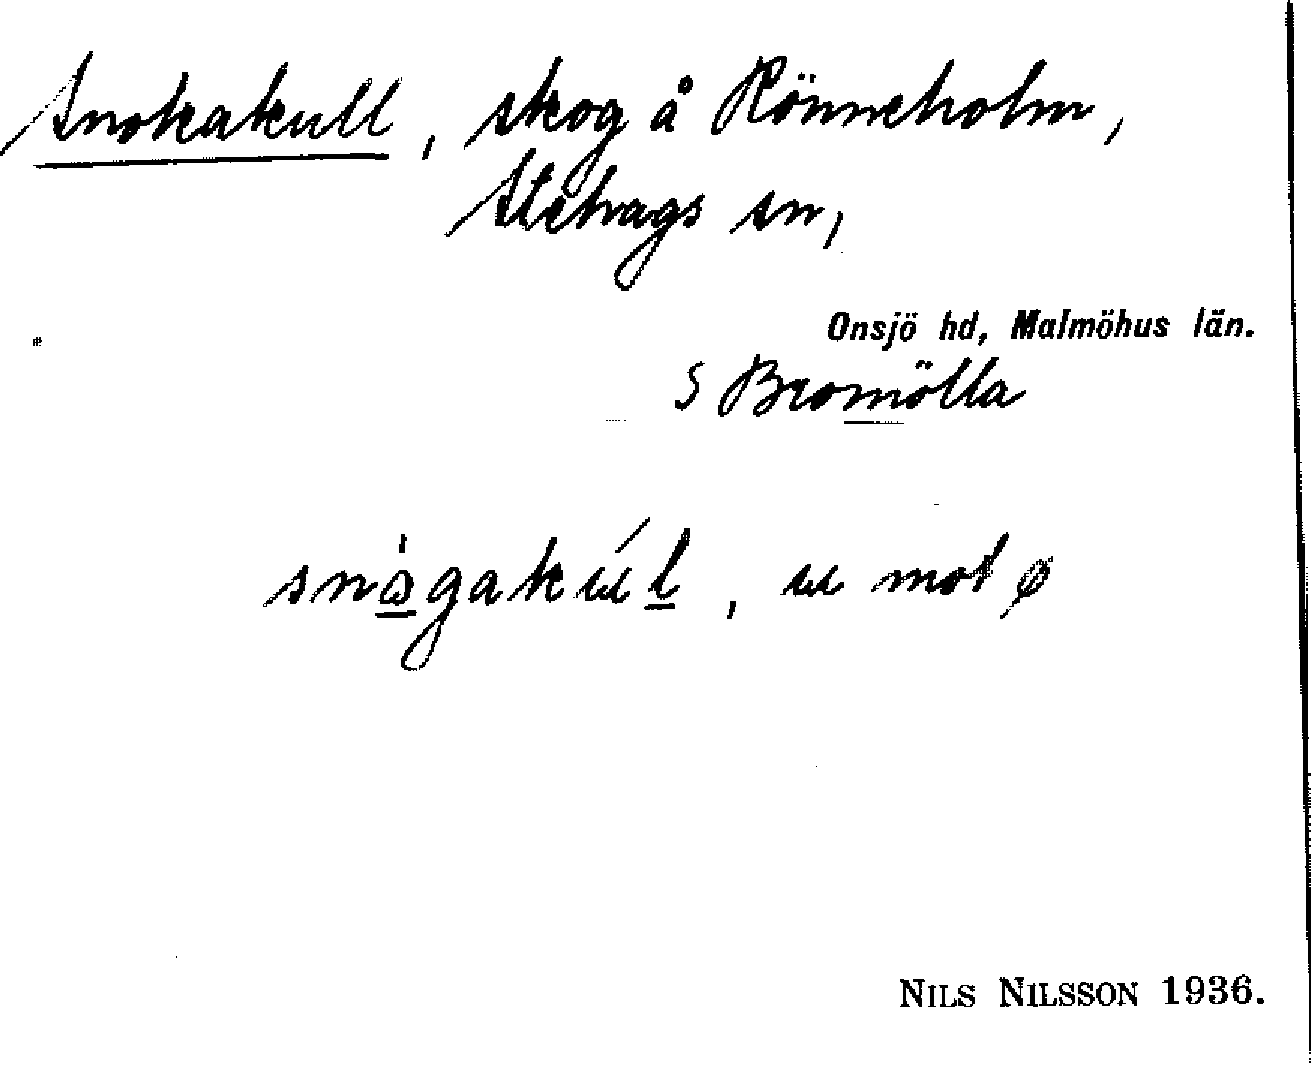 Snokakull, skog å Rönneholm,
Stehags sn,
Onsjö hd, Malmöhus län.
S Bromölla
snɷ̀gakúl, u mot ø
NILS NILSSON 1936.